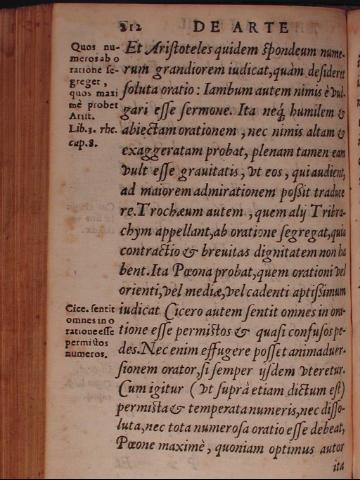 212 DE ARTE
Quos nu-
meros ab o
ratione se-
greget,
quos maxi
mè probet
Arist.
Lib.3. rhe.
cap.8.
Et Aristoteles quidem spondeum nume-
rum grandiorem iudicat, quàm desideret
soluta oratio: Iambum autem nimis è vul-
gari esse sermone. Ita neq; humilem &
abiectam orationem, nec nimis altam &
exaggeratam probat, plenam tamen eam
vult esse grauitatis, vt eos, qui audient,
ad maiorem admirationem possit traduce
re. Trochæum autem, quem alij Tribra-
chym appellant, ab oratione segregat, quia
contractio & breuitas dignitatem non ha
bent. Ita Pœona probat, quem orationi vel
orienti, vel mediæ, vel cadenti aptissimum
Cice. sentit
omnes in o
ratione esse
permistos
numeros.
iudicat. Cicero autem sentit omnes in ora-
tione esse permistos & quasi confusos pe-
des. Nec enim effugere posset animaduer-
sionem orator, si semper ijsdem vteretur.
Cum igitur (vt suprà etiam dictum est)
permista & temperata numeris, nec disso-
luta, nec tota numerosa oratio esse debeat,
Pœone maximè, quoniam optimus autor
ita